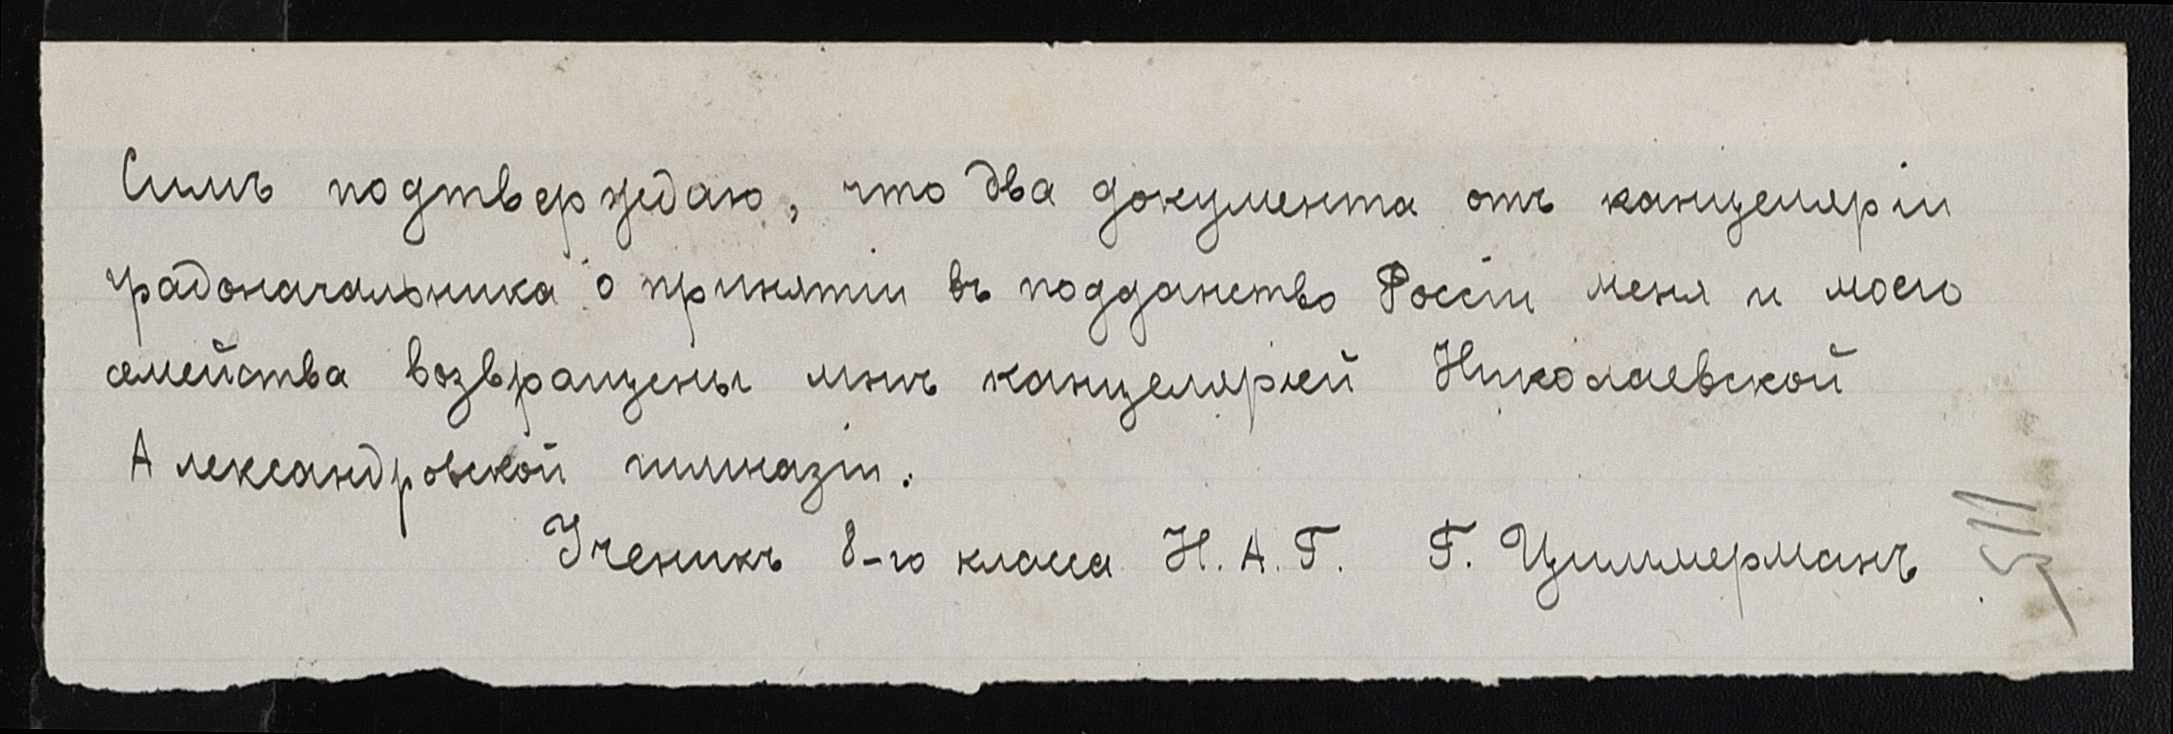 Симъ подтверждаю, что два документа отъ канцеляріи
градоначальника о принятіи въ подданство Россіи меня и моего
семейства возвращены мнѣ канцеляріей Николаевской
Александровской гимназіи.
Ученикъ 8-го класса Н. А. Г. Г. Циммерманъ